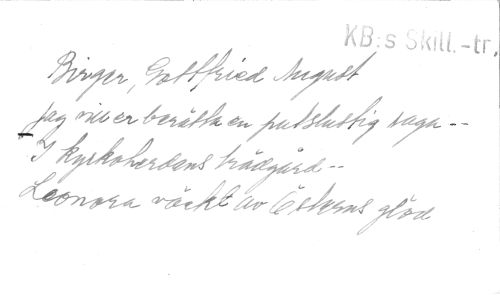 KB:s Skill.-tr.
Birger, Gottfried August
Jag vill er berätta en putslustig saga --
I kyrkoherdens trädgård --
Leonora väckt av Österns glöd